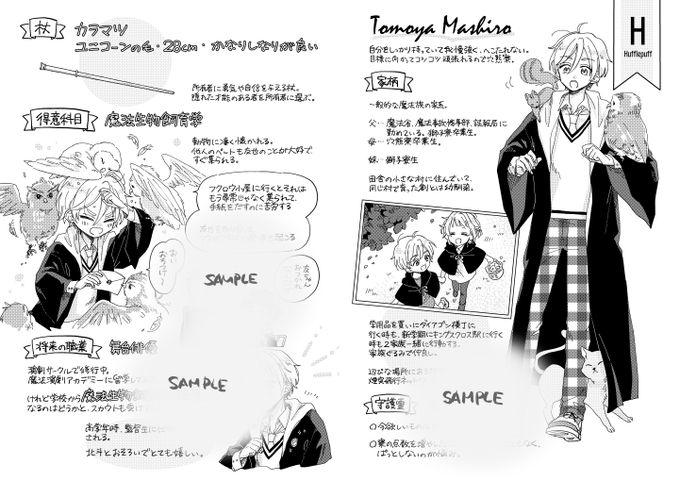 杖
カラマツ
ユニコーンの毛・28cm・かなりしなりが良い
所有者に勇気や自信を与える杖。
隠れた才能のある者を所有者に選ぶ。
得意科目
魔法生物飼育学
動物に凄く懐かれる。
他人のペットも友也のことが大好きで
すぐ集られる。
フクロウ小屋に行くとそれは
もう尋常じゃなく集られて
手紙をだすのに苦労する
SAMPLE
将来の職業
演劇サークルで修行中。
魔法演劇アカデミーに
けれど学校から
なるのはどうかと、スカウトも受け
高学年時、監督生に
される。
北斗とおそろいでとても嬉しい。
SAMPLE
Tomoya Mashiro
H
Hufflepuff
自分をしっかり持っていて我慢強く、へこたれない。
目標に向かってコツコツ頑張れるので穴熊寮。
家柄
一般的な魔法族の家系。
父…魔法省、魔法事故惨事部、誤報局に
勤めている。獅子寮卒業生。
母…穴熊寮卒業生。
妹…獅子寮生
田舎の小さな村に住んでいて、
同じ村で育った創とは幼馴染。
学用品を買いにダイアゴン横丁に
行く時も、新学期にキングスクロス駅に行く
時も2家族一緒に行動する。
家族ぐるみで仲良し。
守護霊
SAMPLE
ぱっとしないのが